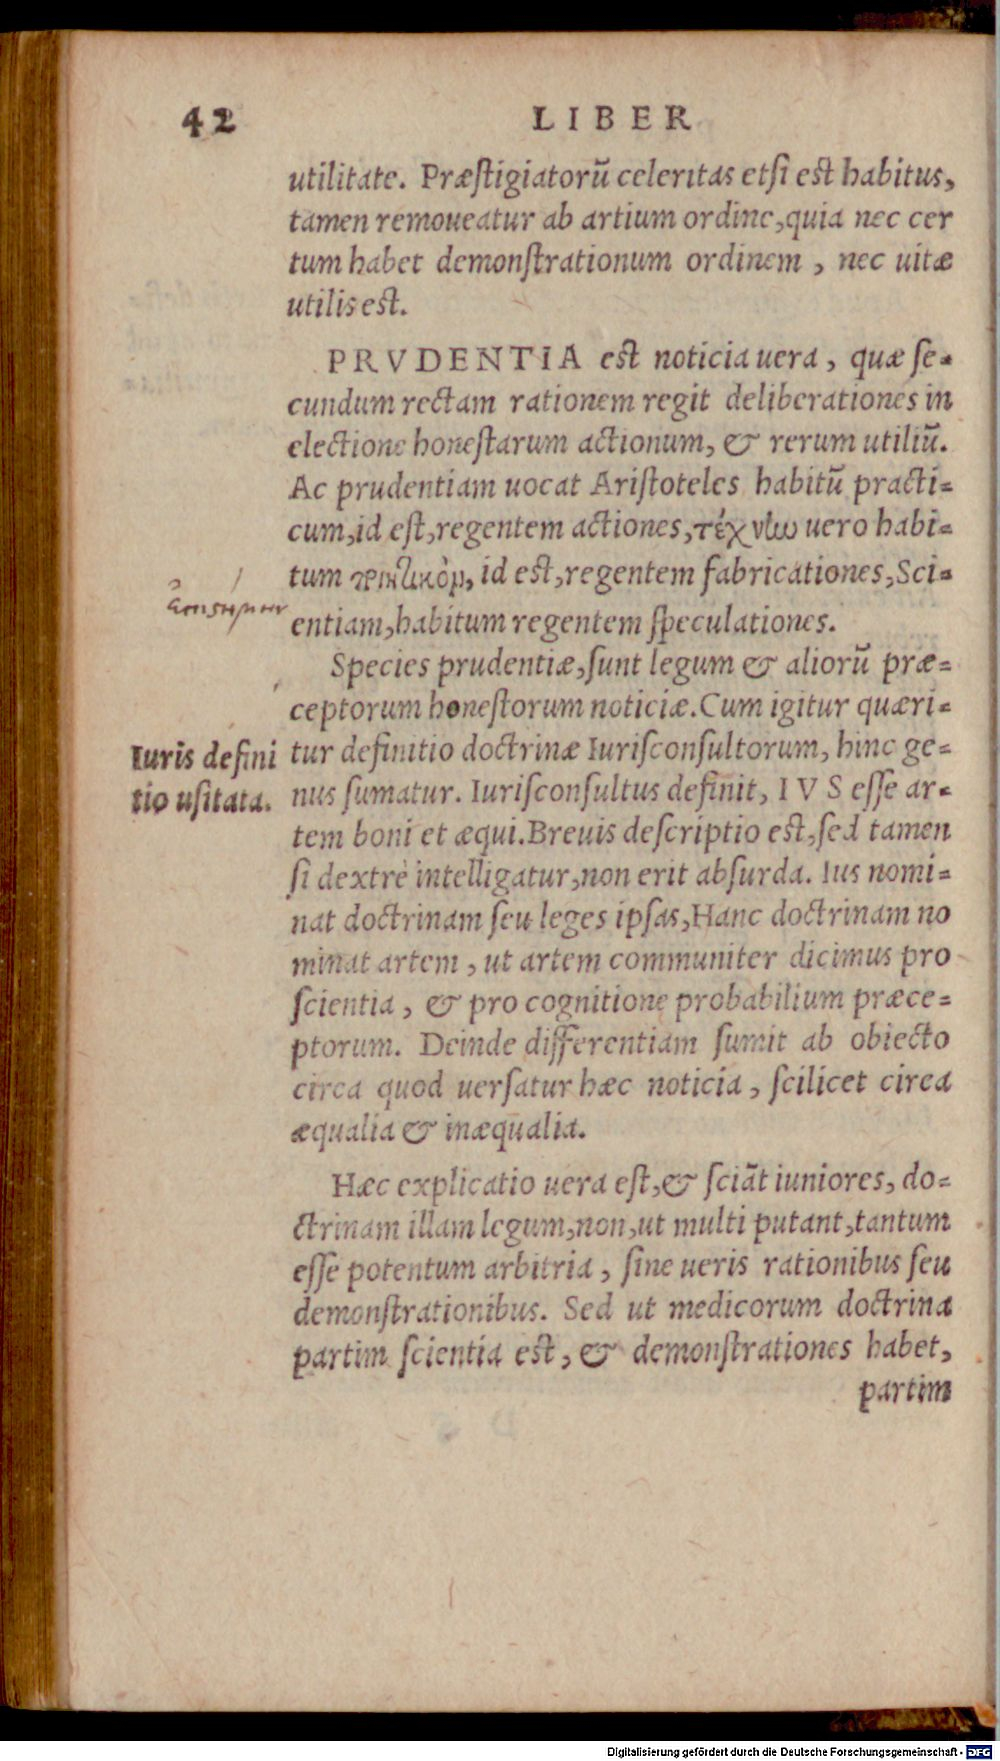 42 LIBER
utilitate. Præſtigiatorũ celeritas etſi est habitus,
tamen remoueatur ab artium ordine, quia nec cer
tum habet demonſtrationum ordinem, nec uitæ
utilis est.
PRVDENTIA est noticia uera, quæ ſe-
cundum rectam rationem regit deliberationes in
electione honeſtarum actionum, & rerum utiliũ.
Ac prudentiam uocat Ariſtoteles habitũ practi-
cum, id eſt, regentem actiones, τέχνἰω uero habi-
tum ποιητικὸμ, id est, regentem fabricationes, Sci-
entiam, habitum regentem ſpeculationes.
Species prudentiæ, ſunt legum & aliorũ præ-
ceptorum honeſtorum noticiæ. Cum igitur quæri-
Iuris defini
tio uſitata.
tur definitio doctrinæ Iuriſconſultorum, hinc ge-
nus ſumatur. Iuriſconſultus definit, IVS eſſe ar-
tem boni et æqui. Breuis deſcriptio est, ſed tamen
ſi dextrè intelligatur, non erit abſurda. Ius nomi-
nat doctrinam ſeu leges ipſas, Hanc doctrinam no
minat artem, ut artem communiter dicimus pro
ſcientia, & pro cognitione probabilium præce-
ptorum. Deinde differentiam ſumit ab obiecto
circa quod uerſatur hæc noticia, ſcilicet circa
æqualia & inæqualia.
Hæc explicatio uera eſt, & ſciãt iuniores, do-
ctrinam illam legum, non, ut multi putant, tantum
eſſe potentum arbitria, ſine ueris rationibus ſeu
demonſtrationibus. Sed ut medicorum doctrina
partim ſcientia est, & demonſtrationes habet,
partim
Digitalisierung gefördert durch die Deutsche Forschungsgemeinschaft - DFG